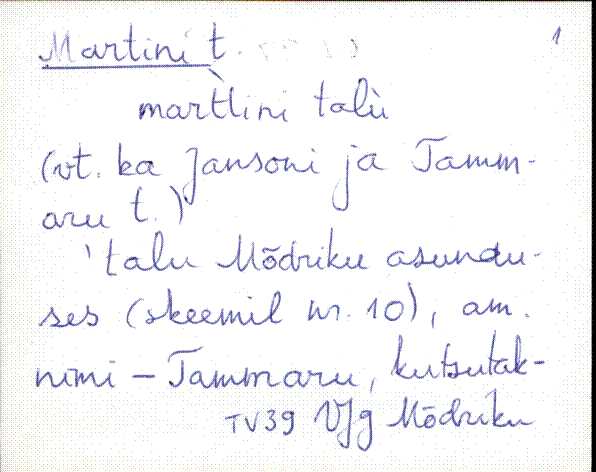 Martini t. 1
mar̀tlini talù
(vt. ka Jansoni ja Tamm-
aru t.)
'talu Mõdriku asundu-
ses (skeemil nr. 10), am.
nimi – Tammaru, kutsutak-
TV39 VJg Mõdriku